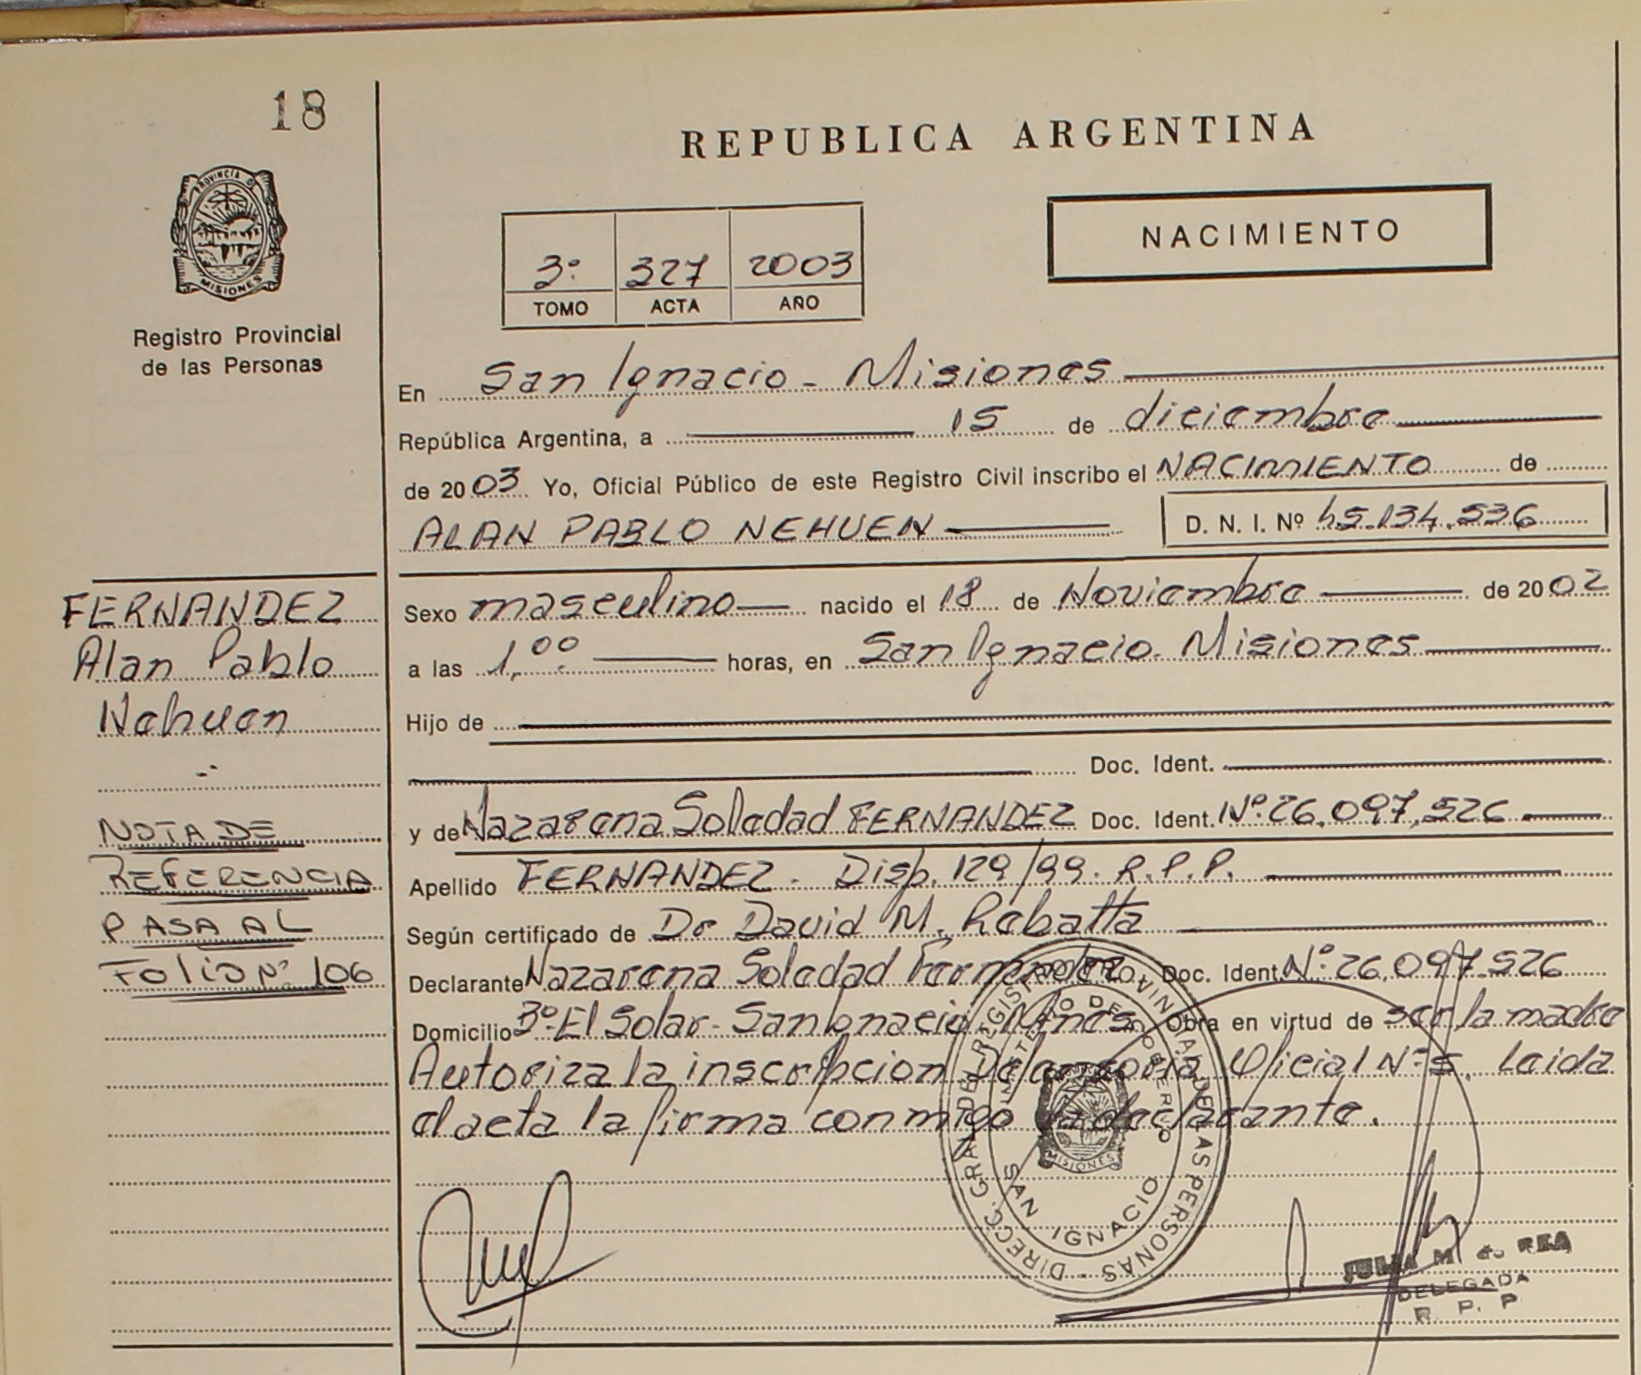 18
REPUBLICA ARGENTINA
PROVINCIA D
MISIONES
Registro Provincial
de las Personas
3º 327 2003
TOMO ACTA AÑO
NACIMIENTO
En San Ignacio - Misiones
República Argentina, a 15 de diciembre
de 2003 Yo, Oficial Público de este Registro Civil inscribo el NACIMIENTO de
ALAN PABLO NEHUEN D. N. I. Nº 45.134.536
FERNANDEZ
Alan Pablo
Nehuen
Sexo masculino nacido el 18 de Noviembre de 2002
a las 1,00 horas, en San Ignacio. Misiones
Hijo de
Doc. Ident.
y de Nazarena Soledad FERNANDEZ Doc. Ident. Nº 26.097.526
Apellido FERNANDEZ - Disp. 129/99. R.P.P.
Según certificado de Dr David M. Rebatta
Declarante Nazarena Soledad Fernandez Doc. Ident. Nº 26.097.526
Domicilio Bº El Solar - San Ignacio Mnes Obra en virtud de ser la madre
Autoriza la inscripcion Delegatoria Oficial Nº 5. Leida
el acta la firma conmigo la declarante.
NOTA DE
REFERENCIA
PASA AL
FOLIO Nº 106
SAN IGNACIO
MISIONES
DELEGADA
R. P. P.